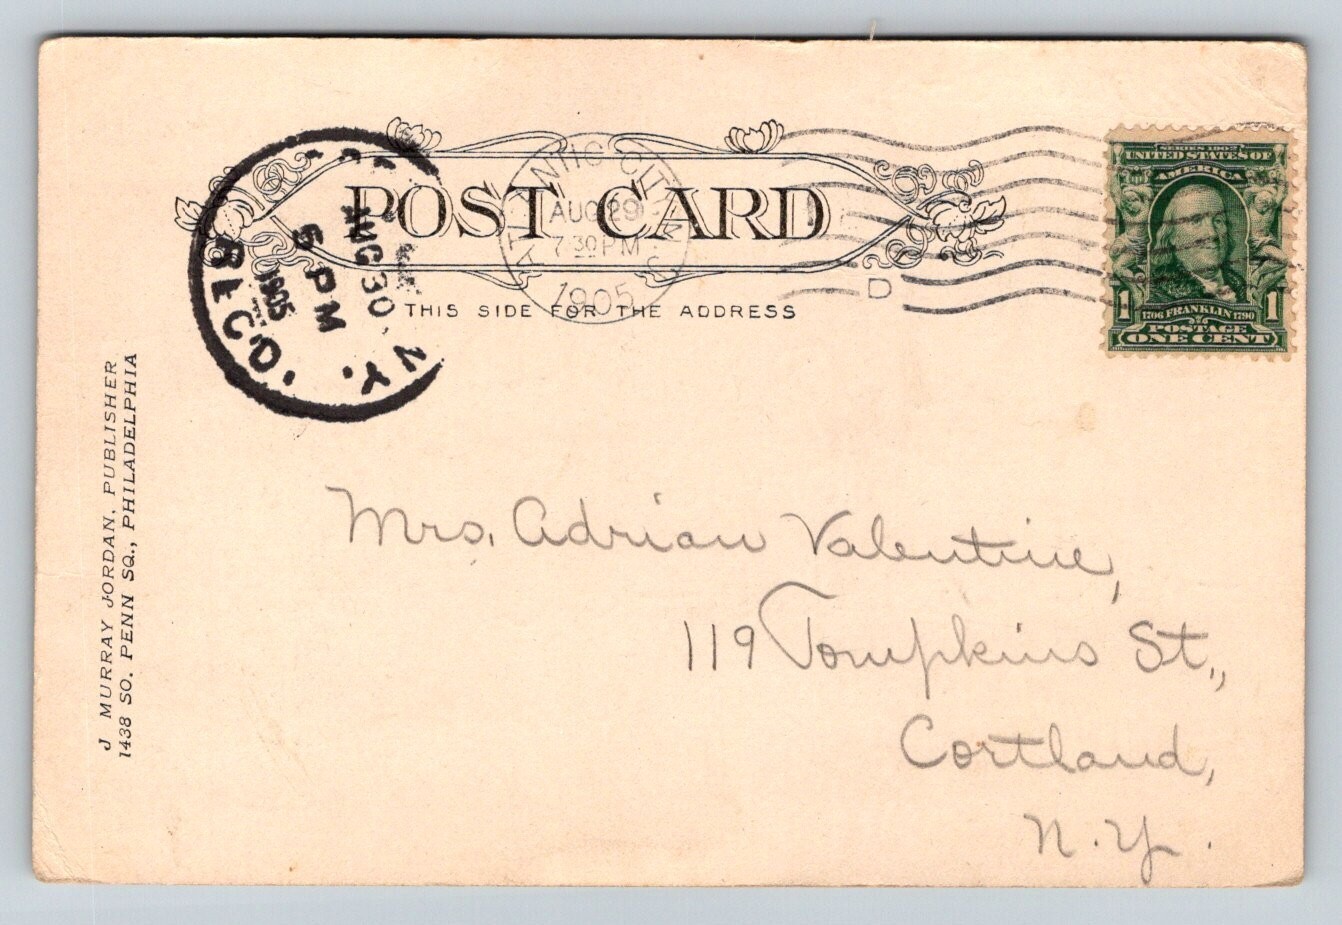 POST CARD
THIS SIDE FOR THE ADDRESS
ATLANTIC CITY N.J.
AUG 29
7 30 PM
1905
D
AUG 30
5 PM
1905
N.Y.
REC'D.
SERIES 1902
UNITED STATES OF
AMERICA
1 1
1706 FRANKLIN 1790
POSTAGE
ONE CENT
Mrs. Adrian Valentine,
119 Tompkins St.,
Cortland,
N.Y.
J MURRAY JORDAN, PUBLISHER
1438 SO. PENN SQ., PHILADELPHIA